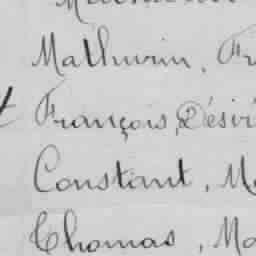 Mathurin, Fr
François, Dési
Constant, M
Thomas, Ma